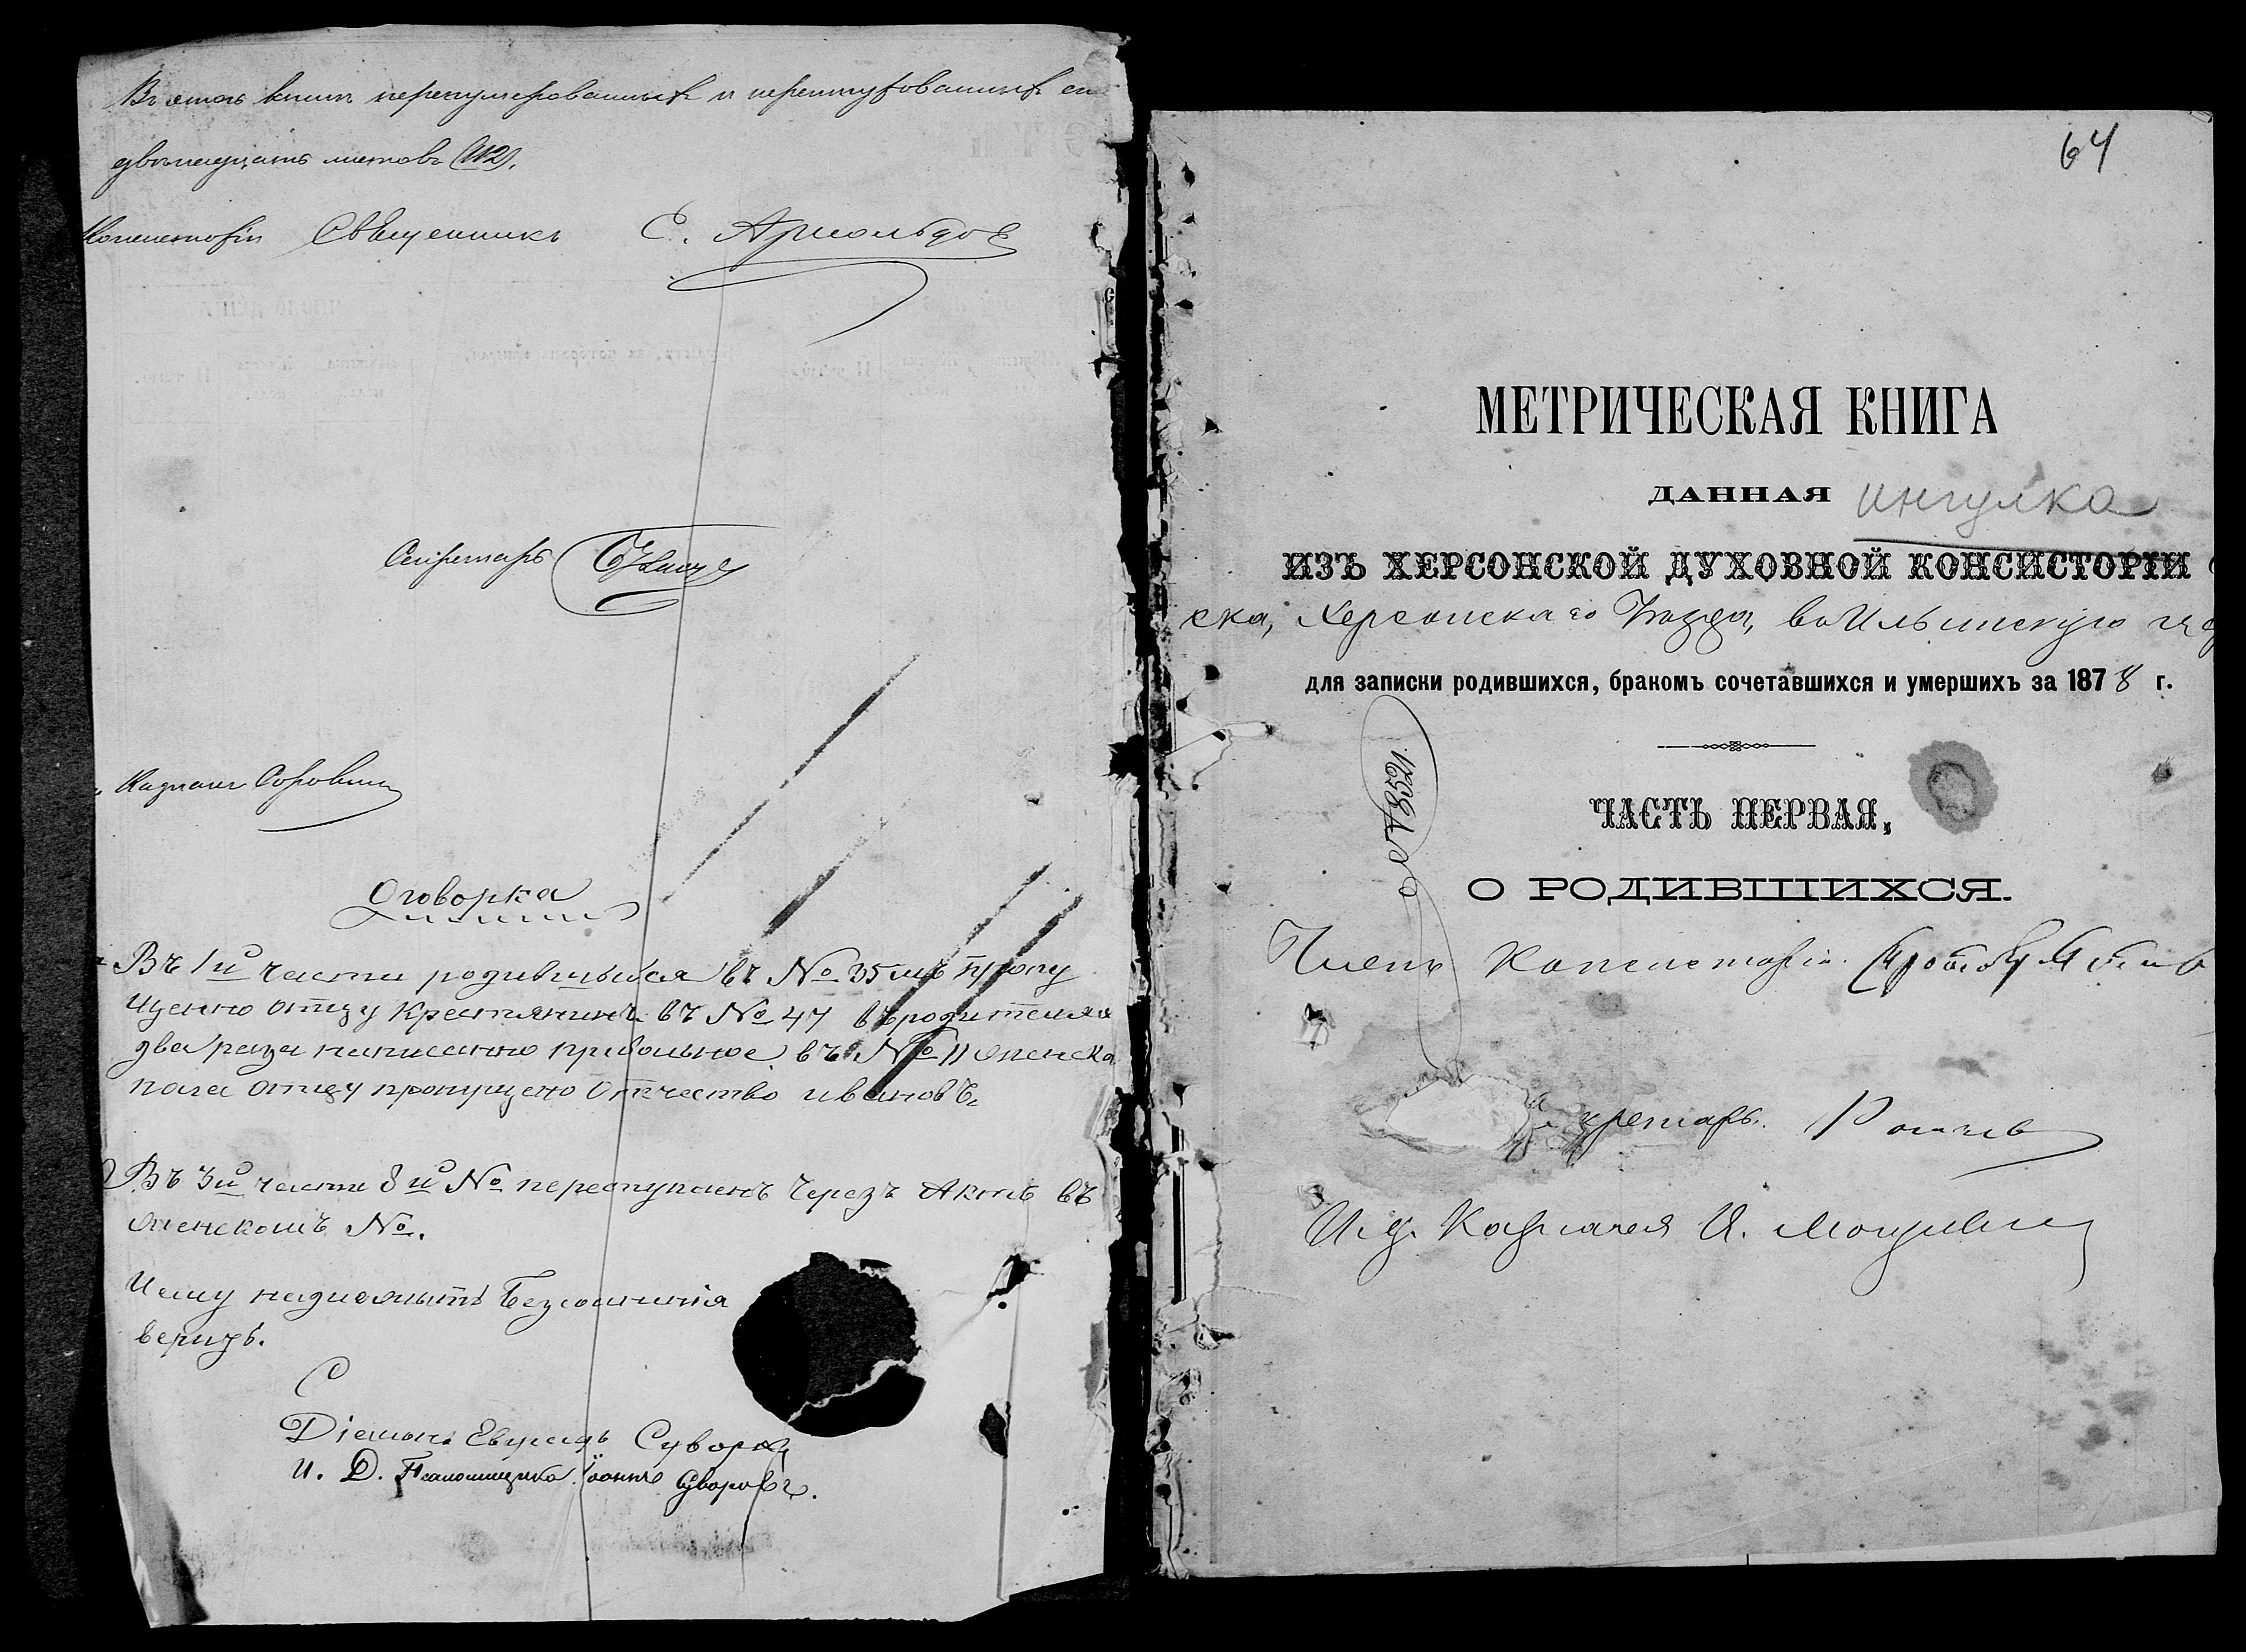 Въ этой книгѣ перенумерованныхъ и перешнурованныхъ сто
двѣнадцать листовъ (112).
Консисторіи Священникъ Е. Арнольдов
Секретарь
Казначей
Оговорка
Въ 1й части родившыися въ № 35мъ пропу
щенно отцу Крестянинъ въ № 47 въ родителяхъ
два раза написанно привольное въ № 11 женска
пола отцу пропущено Отчество ивановъ,
Въ 3й части 8й № переступленъ через Актъ въ
женскомъ №.
Чему надлежытъ безсомнинія
верить.
С
Діяконъ Суворов
И. Д. Псаломщика Іоаннъ Суворовъ.
64
МЕТРИЧЕСКАЯ КНИГА
ДАННАЯ ингулка
ИЗЪ ХЕРСОНСКОЙ ДУХОВНОЙ КОНСИСТОРІИ
ска, Херсонскаго Уѣзда, въ Ильинскую
для записки родившихся, бракомъ сочетавшихся и умершихъ за 1878 г.
№ 3521.
ЧАСТЬ ПЕРВАЯ,
О РОДИВШИХСЯ.
Членъ Консисторіи
кретарь.
И. д. Казначея И.